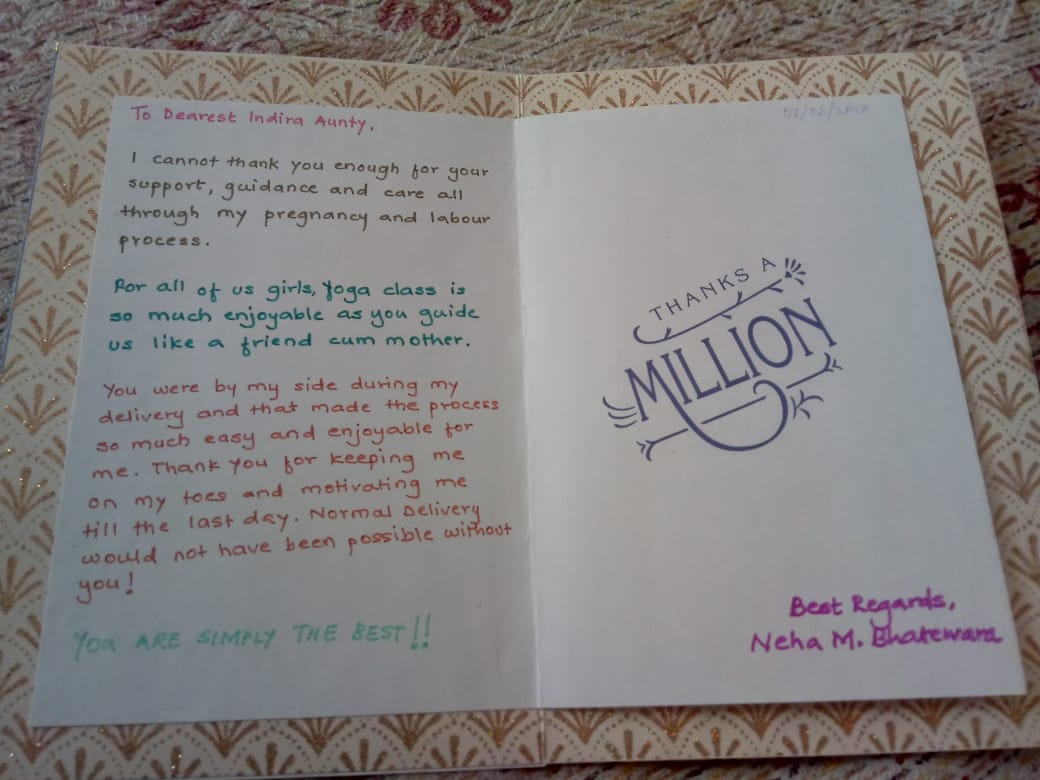 To Dearest Indira Aunty,
I cannot thank you enough for your
support, guidance and care all
through my pregnancy and labour
process.
For all of us girls, Yoga class is
so much enjoyable as you guide
us like a friend cum mother.
You were by my side during my
delivery and that made the process
so much easy and enjoyable for
me. Thank you for keeping me
on my toes and motivating me
till the last day. Normal Delivery
would not have been possible without
you!
YOU ARE SIMPLY THE BEST!!
THANKS A
MILLION
Best Regards,
Neha M. Bhatewara